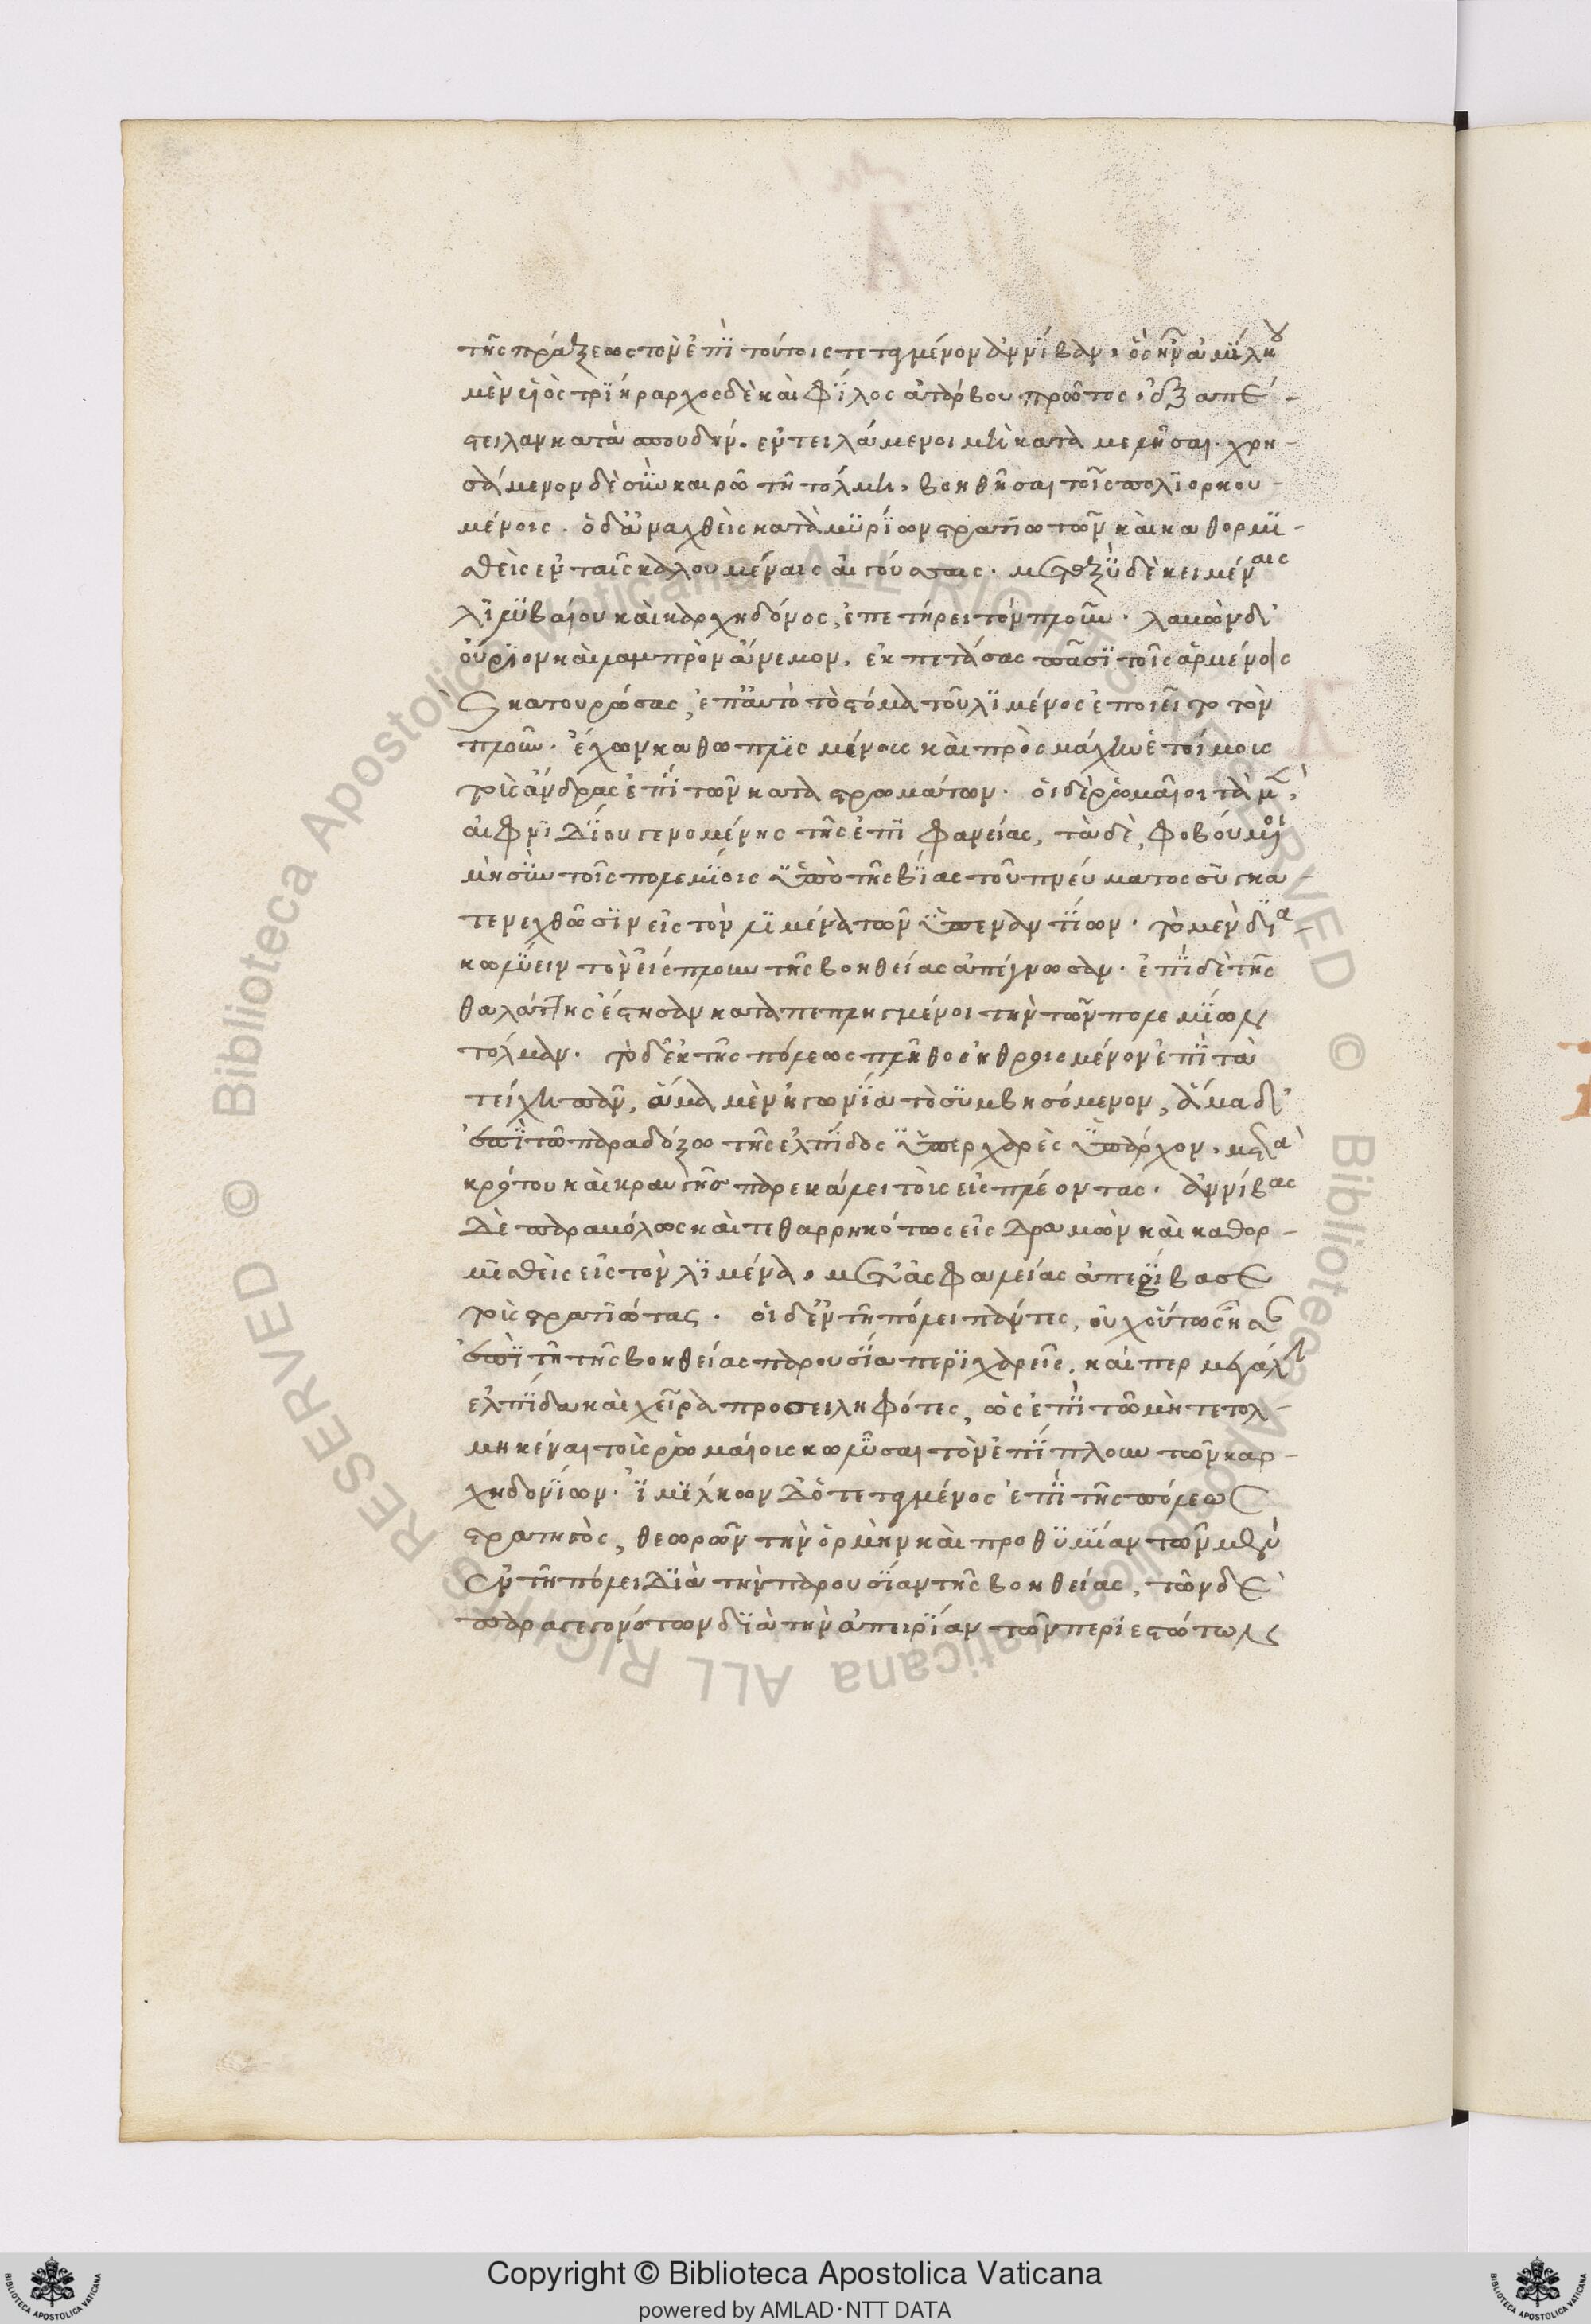 τῆς πράξεως τὸν ἐπὶ τούτοις τεταγμένον ἀννίβαν, ὃς ἦν ἀμίλκου
μὲν υἱὸς τριήραρχος δὲ καὶ φίλος ἀτάρβου πρῶτος, ἐξαπέ-
στειλαν κατὰ σπουδήν. ἐντειλάμενοι μὴ καταμελῆσαι. χρη-
σάμενον δὲ σὺν καιρῶ τῆ τόλμη, βοηθῆσαι τοῖς πολιορκου-
μένοις. ὁ δ' ἀναχθεὶς κατὰ μυρίων στρατιωτῶν καὶ καθορμι-
σθεὶς ἐν ταῖς καλουμέναις αἰγούσσαις. μεταξὺ δὲ κειμέναις
λιλυβαίου καὶ καρχηδόνος, ἐπετήρει τὸν πλοῦν. λαβὼν δὲ
οὔριον καὶ λαμπρὸν ἄνεμον, ἐκπετάσας πᾶσι τοῖς ἀρμένοις
κατουρώσας, ἐπ' αὐτὸ τὸ στόμα τοῦ λιμένος ἐποιεῖτο τὸν
πλοῦν. ἔχων καθωπλισμένοις καὶ πρὸς μάχην ἑτοίμοις
τοὺς ἄνδρας ἐπὶ τῶν καταστρωμάτων. οἱ δὲ ῥωμαῖοι τὰ μὲν,
αἰφνιδίου γενομένης τῆς ἐπιφανείας, τὰ δὲ, φοβούμενοι
μὴ σὺν τοῖς πολεμίοις ὑπὸ τῆς βίας τοῦ πνεύματος συγκα-
τενεχθῶσιν εἰς τὸν λιμένα τῶν ὑπεναντίων. τὸ μὲν δια-
κωλύειν τὸν εἴσπλουν τῆς βοηθείας ἀπέγνωσαν. ἐπὶ δὲ τῆς
θαλάττης ἔστησαν καταπεπληγμένοι τὴν τῶν πολεμίων
τόλμαν. τὸ δ' ἐκ τῆς πόλεως πλῆθος ἠθροισμένον ἐπὶ τὰ
τείχη πᾶν, ἅμα μὲν ἠγωνία τὸ συμβησόμενον, ἅμα δὲ
ἐπὶ τῶ παραδόξω τῆς ἐλπίδος ὑπερχαρὲς ὑπάρχον, μετὰ
κρότου καὶ κραυγῆς παρεκάλει τοὺς εἰσπλέοντας. ἀννίβας
δὲ παραβόλως καὶ τεθαρρηκότως εἰσδραμὼν καὶ καθορ-
μισθεὶς εἰς τὸν λιμένα, μετ' ἀσφαλείας ἀπεβίβασε
τοὺς στρατιώτας. οἱ δ' ἐν τῆ πόλει πάντες, οὐχ οὕτως ἦσαν
ἐπὶ τῆ τῆς βοηθείας παρουσία περιχαρεῖς, καίπερ μεγάλην
ἐλπίδα καὶ χεῖρα προσειληφότες, ὡς ἐπὶ τῶ μὴ τετολ-
μηκέναι τοὺς ῥωμαίοις κωλῦσαι τὸν ἐπίπλουν τῶν καρ-
χηδονίων. ἰμίλκων δ' ὁ τεταγμένος ἐπὶ τῆς πόλεως
στρατηγὸς, θεωρῶν τὴν ὁρμὴν καὶ προθυμίαν τῶν μὲν
ἐν τῆ πόλει διὰ τὴν παρουσίαν τῆς βοηθείας, τῶν δὲ
παραγεγονότων διὰ τὴν ἀπειρίαν τῶν περιεστώτων
Copyright © Biblioteca Apostolica Vaticana
powered by AMLAD·NTT DATA